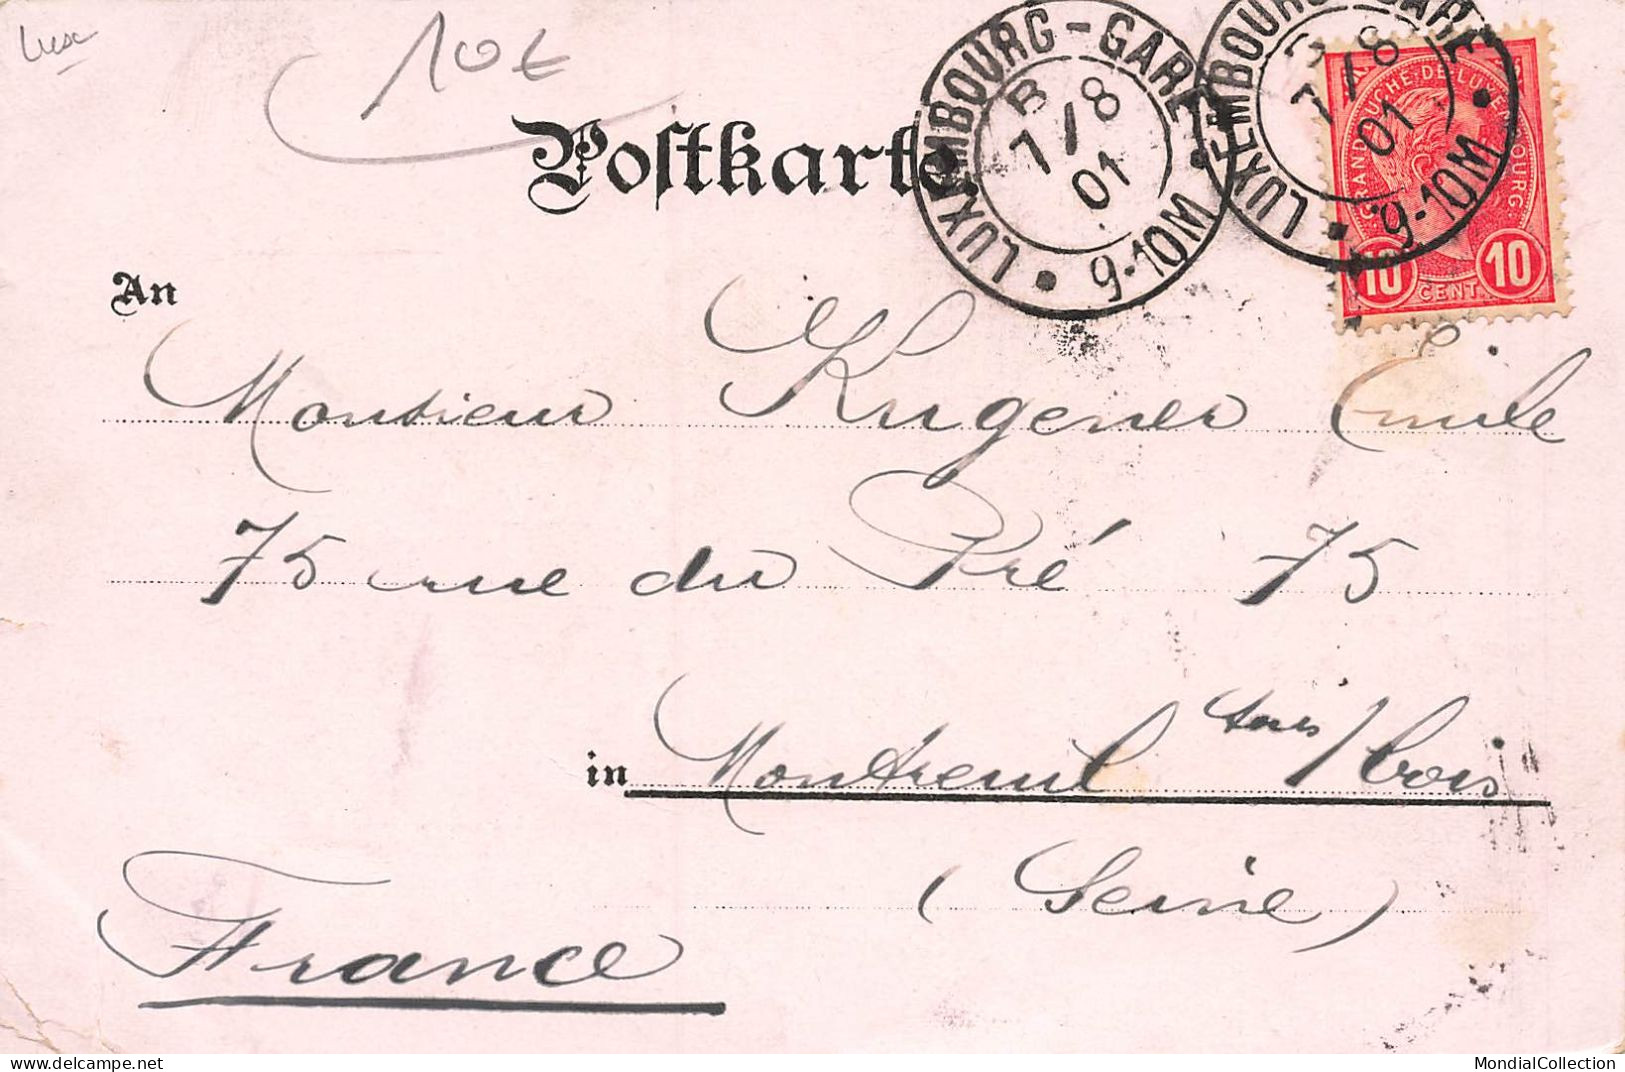 Luxe
10€
Postkarte
LUXEMBOURG-GARE
B
7/8
01
9-10M
LUXEMBOURG-GARE
7/8
01
9-10M
GRAND DUCHE DE LUXEMBOURG
10 CENT. 10
An
Monsieur Kugener Emile
75 rue du Pré 75
in Montreuil sous/bois
(Seine)
France
delcampe.net
MondialCollection